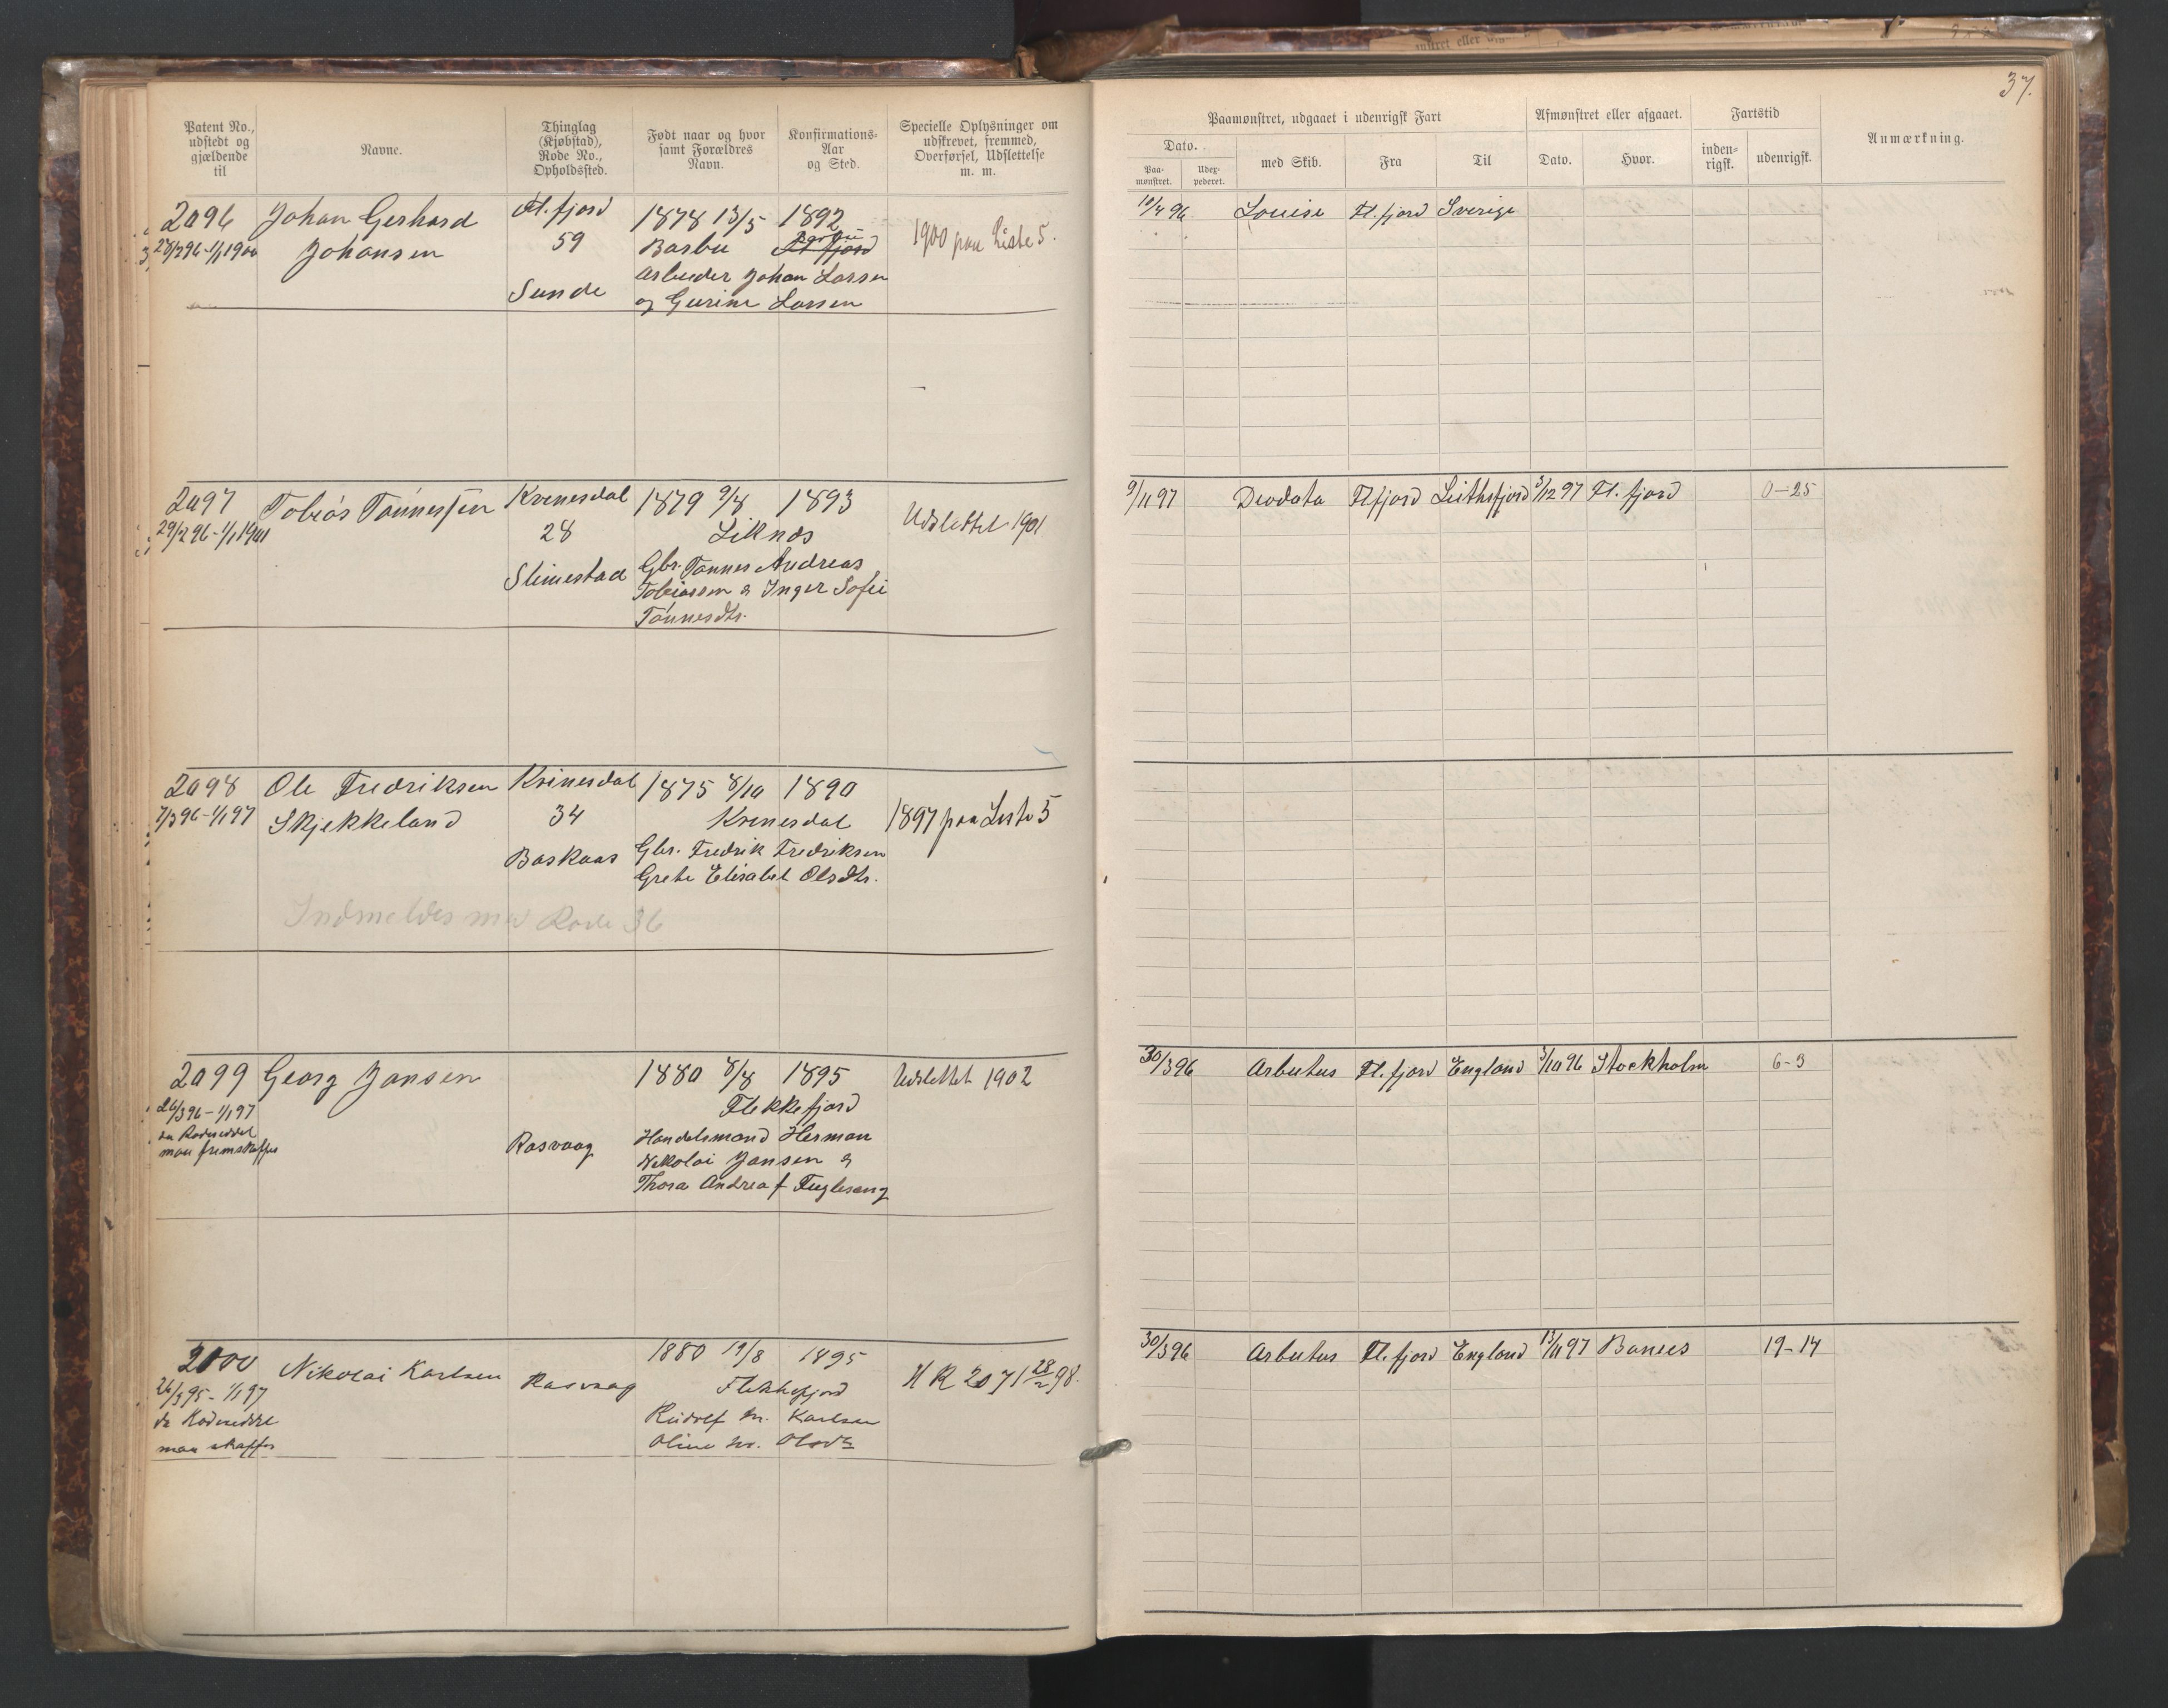 37.
Patent No., udstedt og gjældende til
Navne.
Thinglag (Kjøbstad), Rode No., Opholdssted.
Født naar og hvor samt Forældres Navn.
Konfirmations-Aar og Sted.
Specielle Oplysninger om udskrevet, fremmed, Overførsel, Udslettelse m. m.
Paamønstret, udgaaet i udenrigsk Fart
Dato.
Paa-mønstret.
Udex-pederet.
med Skib.
Fra
Til
Afmønstret eller afgaaet.
Dato.
Hvor.
Fartstid
inden-rigsk.
udenrigsk.
Anmærkning.
2096 Johan Gerhard Fl. fjord 1878 13/5 1892 10/4 96 Louise Fl. fjord Sverige
28/2 96 - 1/1 1900 Johansen 59 Barbu Barbu Fl fjord 1900 paa Liste 5.
Sunde Arbeider Johan Larsen
og Gurine Larsen
2097 Tobias Tønnessen Kvinesdal 1879 9/8 1893 Udslettet 1901 9/11 97 Deodata Fl fjord Leithsfjord 3/12 97 Fl. fjord 0-25
29/2 96 - 1/1 1901 28 Liknes
Slimestad Gbr. Tønnes Andreas
Tobiassen & Inger Sofie
Tønnesdtr.
2098 Ole Fredriksen Kvinesdal 1875 8/10 1890
7/3 96 - 1/1 97 Skjekkeland 34 Kvinesdal 1897 paa Liste 5
Baskaas Gbr. Fredrik Fredriksen
Grete Elisabet Olsdtr.
Indmeldes med Rode 36
2099 Georg Jansen 1880 8/8 1895 Udslettet 1902 30/3 96 Arbutus Fl. fjord England 3/10 96 Stockholm 6-3
26/3 96 - 1/1 97 Flekkefjord
da Rodeseddel
maa fremskaffes Rasvaag Handelsmand Herman
Nikolai Jansen &
Thora Andrea f Fuglesang
2100 Nikolai Karlsen Rasvaag 1880 19/8 1895 H R 2071 28/2 98. 30/3 96 Arbutus Fl. fjord England 13/11 97 19-14
26/3 95 - 1/1 97 Flekkefjord
da Rodeseddel Rudolf M. Karlsen
maa skaffes Oline M. Olsdtr